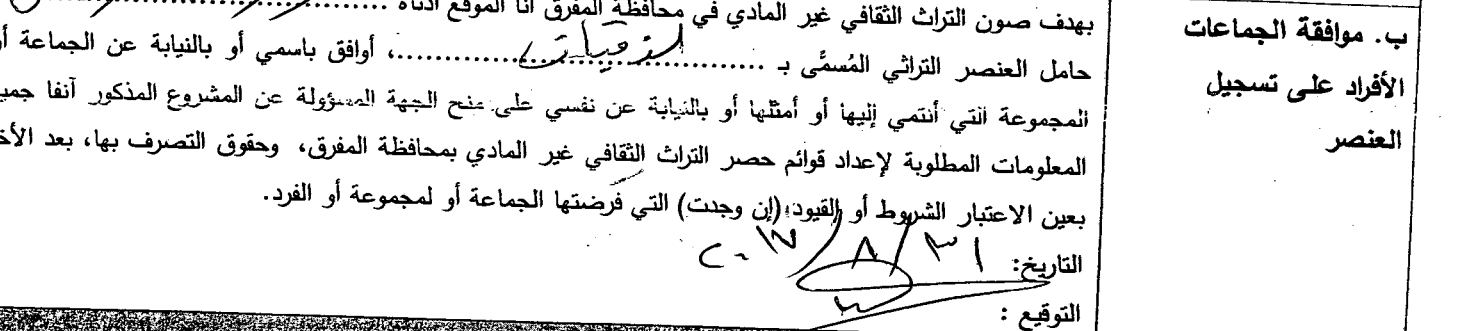 ب. موافقة الجماعات
الأفراد على تسجيل
العنصر
بهدف صون التراث الثقافي غير المادي في محافظة المفرق أنا الموقع أدناه ....................
حامل العنصر التراثي المُسمَّى بـ ....................، أوافق باسمي أو بالنيابة عن الجماعة أو
المجموعة التي أنتمي إليها أو أمثلها أو بالنيابة عن نفسي على منح الجهة المسؤولة عن المشروع المذكور آنفا جميع
المعلومات المطلوبة لإعداد قوائم حصر التراث الثقافي غير المادي بمحافظة المفرق، وحقوق التصرف بها، بعد الأخذ
بعين الاعتبار الشروط أو القيود (إن وجدت) التي فرضتها الجماعة أو لمجموعة أو الفرد.
التاريخ: ٣١/٨/٢٠١٧
التوقيع :